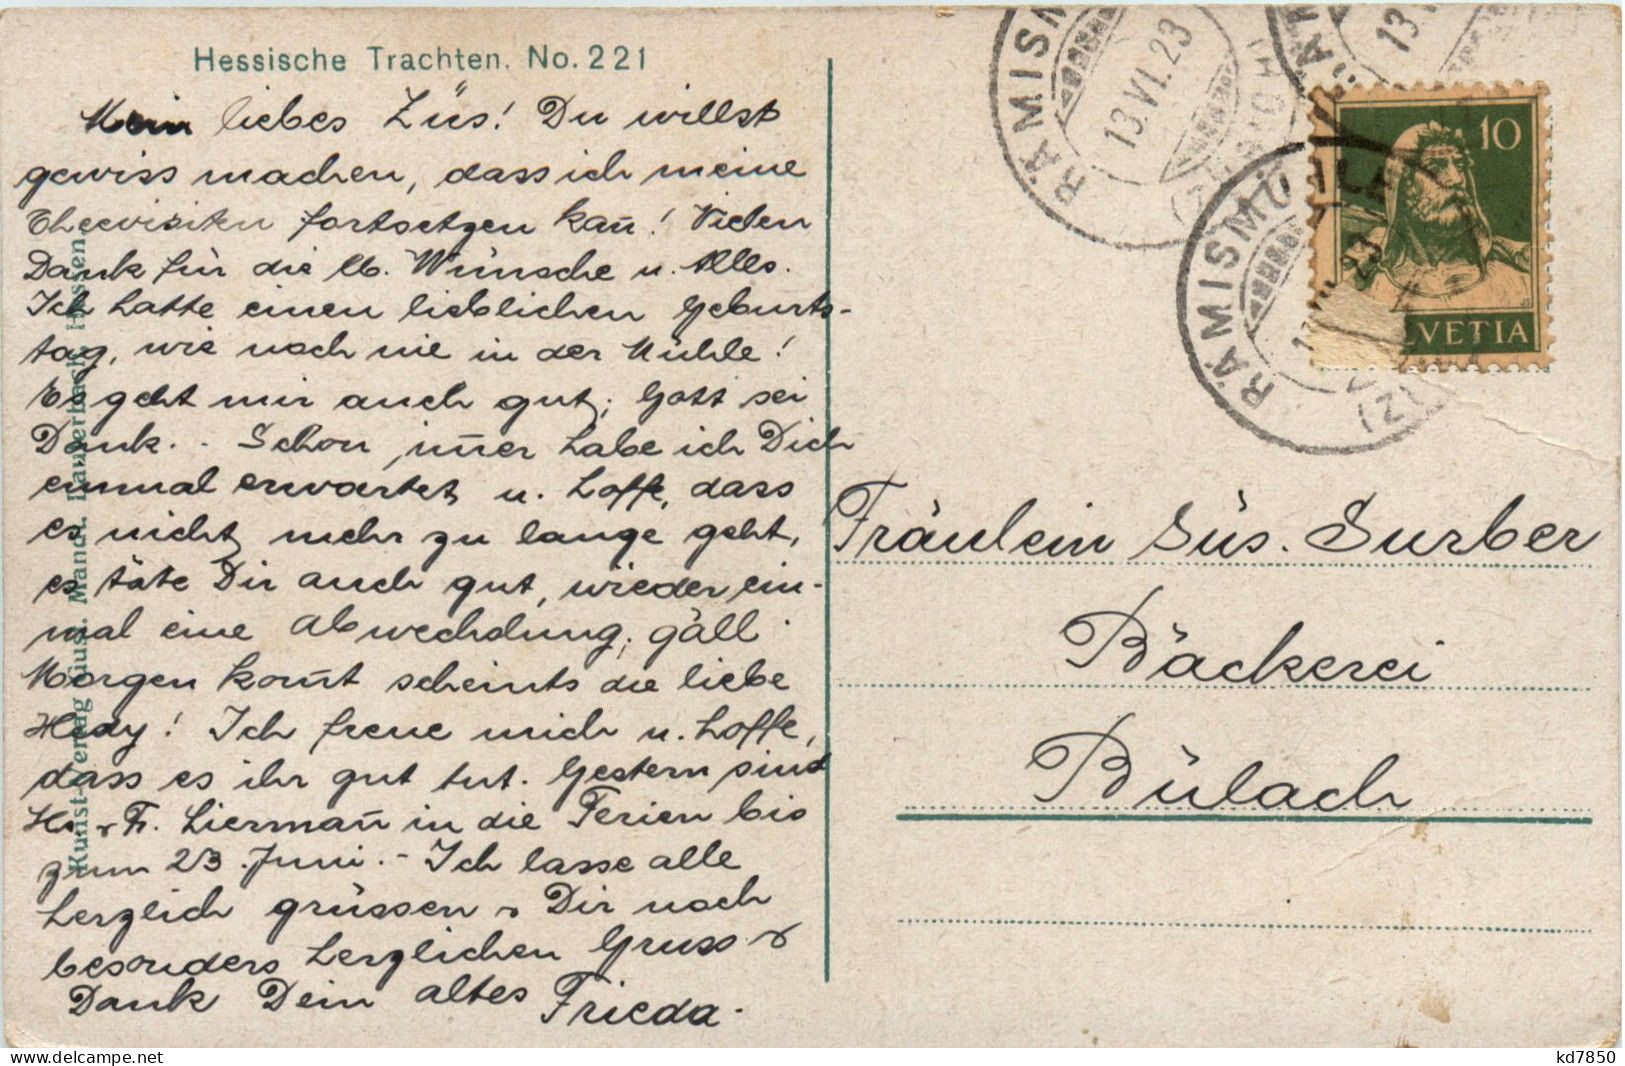 Hessische Trachten. No. 221
Mein liebes Züs! Du willst
gewiss machen, dass ich meine
Theevisiten fortsetzen kan̄! Vielen
Dank für die lb. Wünsche u. Alles.
Ich hatte einen lieblichen Geburts-
tag, wie noch nie in der Mühle!
Es geht mir auch gut, Gott sei
Dank. - Schon im̄er habe ich Dich
einmal erwartet u. hoffe, dass
es nicht mehr zu lange geht,
es täte Dir auch gut, wieder ein-
mal eine Abwechslung, gäll.
Morgen kom̄t scheints die liebe
Hedy! Ich freue mich u. hoffe,
dass es ihr gut tut. Gestern sind
Hr. & Fr. Lierman̄ in die Ferien bis
zum 23. Juni. - Ich lasse alle
herzlich grüssen & Dir noch
besonders herzlichen Gruss &
Dank Dein altes Frieda.
Kunst-Verlag Gust. Mandt Lauterbach Hessen.
RÄMISMÜHLE
13.VI.23
(ZÜRICH)
10
HELVETIA
RÄMISMÜHLE
23
(Z
13.V
Fräulein Süs. Surber
Bäckerei
Bülach
delcampe.net
kd7850